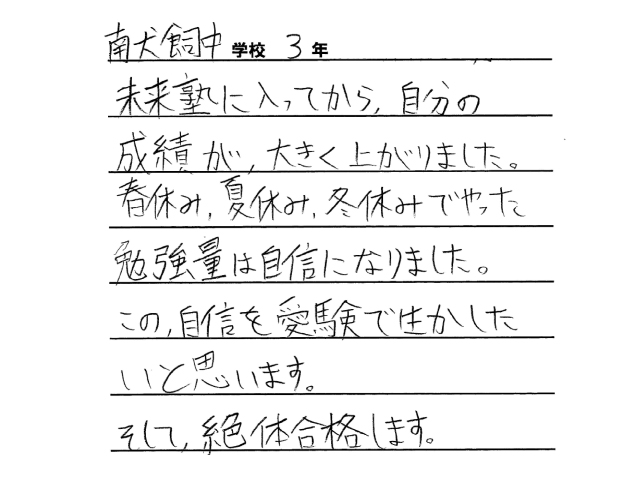 南犬飼中学校 3年
未来塾に入ってから,自分の
成績が,大きく上がりました。
春休み,夏休み,冬休みでやった
勉強量は自信になりました。
この,自信を愛験で生かした
いと思います。
そして,絶体合格します。